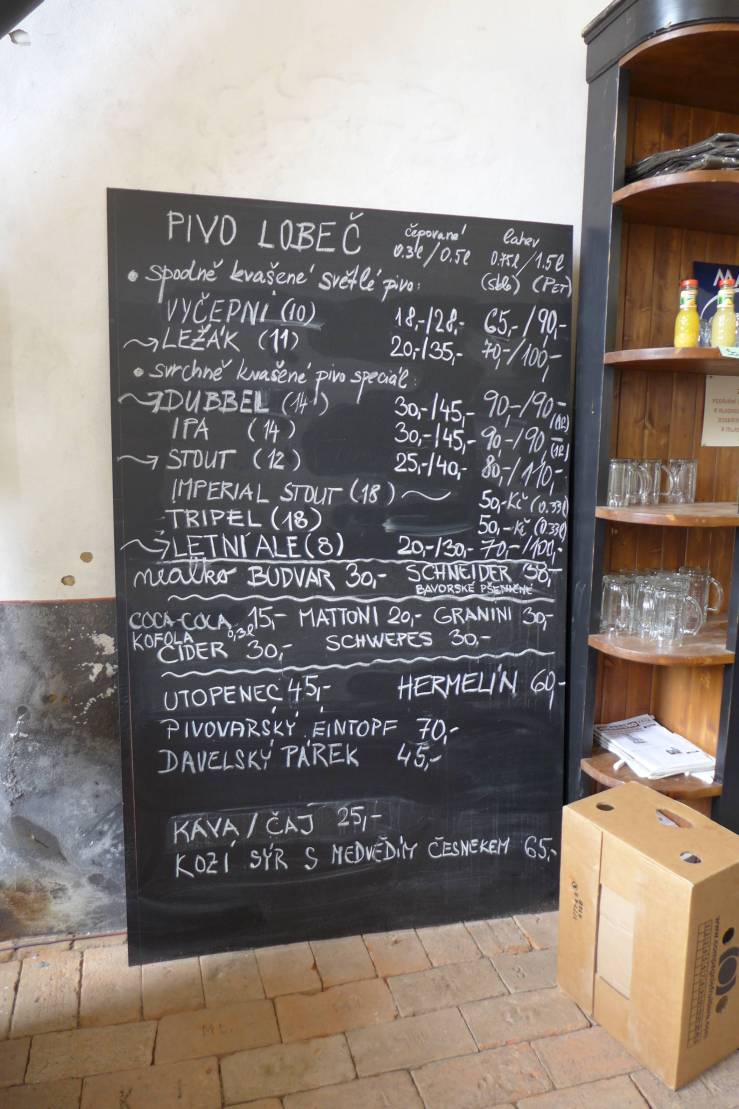 PIVO LOBEČ
čepované lahev
0.3l / 0.5l 0.75l / 1.5l
(sklo) (PET)
• spodně kvašené světlé pivo:
VÝČEPNÍ (10) 18,-/28,- 65,-/90,-
LEŽÁK (11) 20,-/35,- 70,-/100,-
• svrchně kvašené pivo speciál:
DUBBEL (14) 30,-/45,- 90,-/90,- (1l)
IPA (14) 30,-/45,- 90,-/90,- (1l)
STOUT (12) 25,-/40,- 80,-/110,-
IMPERIAL STOUT (18) 50,-Kč (0.33l)
TRIPEL (18) 50,-Kč (0.33l)
LETNÍ ALE (8) 20,-/30,- 70,-/100,-
nealko BUDVAR 30,- SCHNEIDER 38,-
BAVORSKÉ PŠENIČNÉ
COCA-COLA 15,- MATTONI 20,- GRANINI 30,-
KOFOLA 0,3l SCHWEPES 30,-
CIDER 30,-
UTOPENEC 45,- HERMELÍN 60,-
PIVOVARSKÝ EINTOPF 70,-
DAVELSKÝ PÁREK 45,-
KÁVA / ČAJ 25,-
KOZÍ SÝR S MEDVĚDÍM ČESNEKEM 65,-